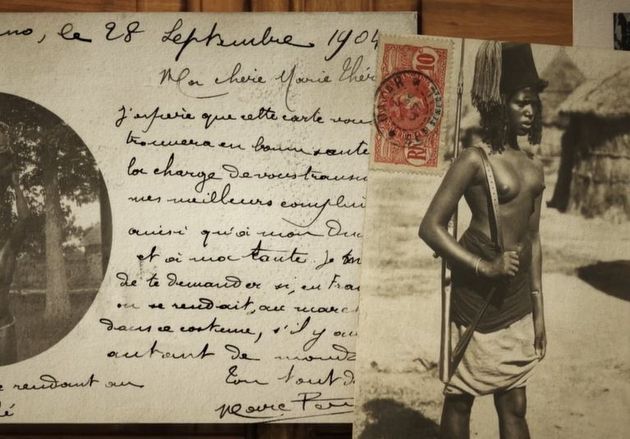 le 28 Septembre 1904
Ma chère Marie Thér
J'espère que cette carte vou
trouvera en bonne santé
la charge de vous transm
mes meilleurs complim
ainsi qu'à mon On
et à ma tante. Je
de te demander si, en Fra
on se rendait, au marc
dans ce costume, s'il y au
autant de monde
Ton tout d
rendant au
10